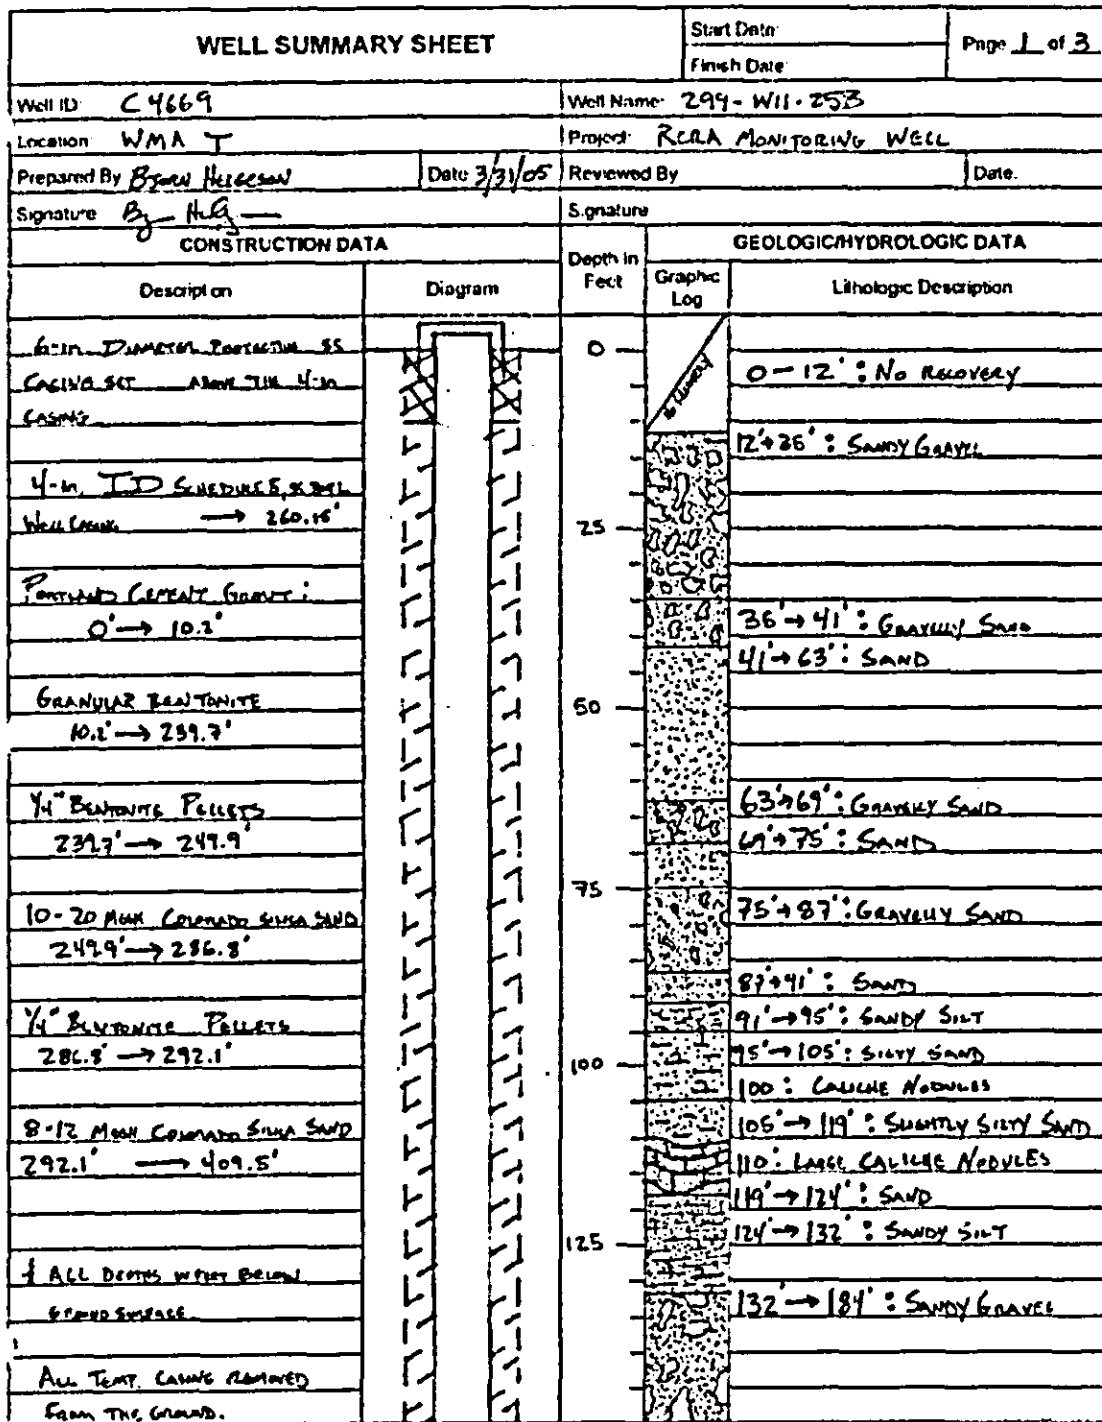 WELL SUMMARY SHEET
Start Date:
Finish Date:
Page 1 of 3
Well ID: C4669
Well Name: 299-W11-25B
Location: WMA T
Project: RCRA MONITORING WELL
Prepared By
Date 3/31/05
Reviewed By
Date.
Signature
Signature
CONSTRUCTION DATA
Depth in Feet
GEOLOGIC/HYDROLOGIC DATA
Description
Diagram
Graphic Log
Lithologic Description
6-in DIAMETER PROTECTIVE SS
CASING SET ABOVE THE 4-in
CASING
4-in. ID SCHEDULE 5,
WELL CASING → 260.15'
PORTLAND CEMENT GROUT:
0' → 10.2'
GRANULAR BENTONITE
10.2' → 239.7'
1/4" BENTONITE PELLETS
239.7' → 249.9'
10-20 MESH COLORADO SILICA SAND
249.9' → 286.8'
1/4" BENTONITE PELLETS
286.8' → 292.1'
8-12 MESH COLORADO SILICA SAND
292.1' → 409.5'
ALL DEPTHS IN FEET BELOW
GROUND SURFACE
ALL TEMP. CASING REMOVED
FROM THE GROUND.
0
25
50
75
100
125
No RECOVERY
0 - 12': No RECOVERY
12'→36': SANDY GRAVEL
36'→41': GRAVELLY SAND
41'→63': SAND
63'→69': GRAVELLY SAND
69'→75': SAND
75'→87': GRAVELLY SAND
87'→91': SAND
91'→95': SANDY SILT
95'→105': SILTY SAND
100: CALICHE NODULES
105'→119': SLIGHTLY SILTY SAND
110': LARGE CALICHE NODULES
119'→124': SAND
124'→132': SANDY SILT
132'→184': SANDY GRAVEL